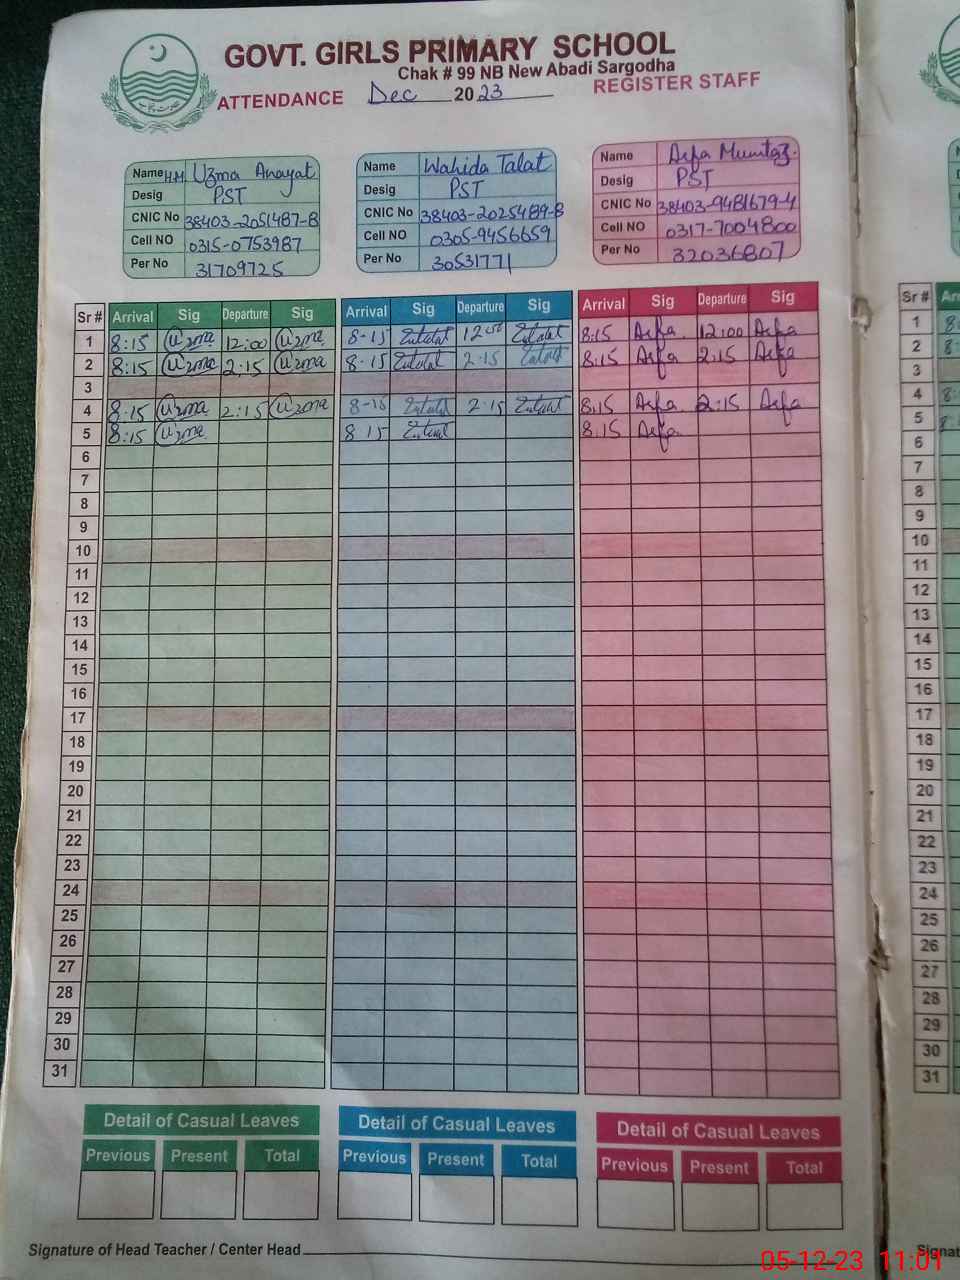 GOVT. GIRLS PRIMARY SCHOOL
Chak # 99 NB New Abadi Sargodha
ATTENDANCE Dec 2023 REGISTER STAFF
Name H.M. Uzma Anayat
Desig PST
CNIC No 38403-2051487-8
Cell NO 0315-0753987
Per No 31709725
Name Wahida Talat
Desig PST
CNIC No 38403-2025489-8
Cell NO 0305-9456659
Per No 30531771
Name Asfa Mumtaz.
Desig PST
CNIC No 38403-9481679-4
Cell NO 0317-7004800
Per No 32036807
Sr # Arrival Sig Departure Sig Arrival Sig Departure Sig Arrival Sig Departure Sig
1 8:15 Uzma 12:00 Uzma 8-15 12:00 8:15 Asfa 12:00 Asfa
2 8:15 Uzma 2:15 Uzma 8-15 2:15 8:15 Asfa 2:15 Asfa
3
4 8:15 Uzma 2:15 Uzma 8-15 2:15 8:15 Asfa 2:15 Asfa
5 8:15 Uzma 8 15 8:15 Asfa
6
7
8
9
10
11
12
13
14
15
16
17
18
19
20
21
22
23
24
25
26
27
28
29
30
31
Detail of Casual Leaves Detail of Casual Leaves Detail of Casual Leaves
Previous Present Total Previous Present Total Previous Present Total
Signature of Head Teacher / Center Head
Sr #
1
2
3
4
5
6
7
8
9
10
11
12
13
14
15
16
17
18
19
20
21
22
23
24
25
26
27
28
29
30
31
05-12-23 11:01